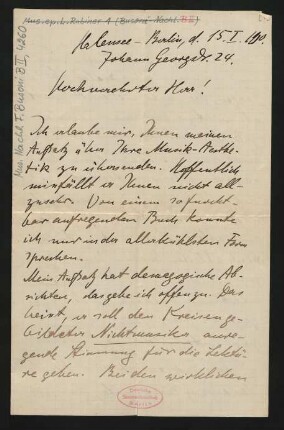 Mus. ep. L. Rubiner 1 (Busoni-Nachl. B II)
Mus. Nachl. F. Busoni B II, 4260
Halensee-Berlin, d. 15. I. 
Johann Georgstr. 24.
Hochverehrter Herr!
Ich erlaube mir, Ihnen meinen
Aufsatz über Ihre Musik-Aesthe-
tik zu übersenden. Hoffentlich
missfällt er Ihnen nicht all-
zusehr. Von einem so furcht-
bar aufregenden Buch konnte
ich nur in der allerkühlsten Form
sprechen.
Mein Aufsatz hat demagogische Ab-
sichten, das gebe ich offen zu. Das
heisst, er soll den Kreisen ge-
bildeter Nichtmusiker anre-
gende Stimmung für die Lektü-
re geben. Bei den